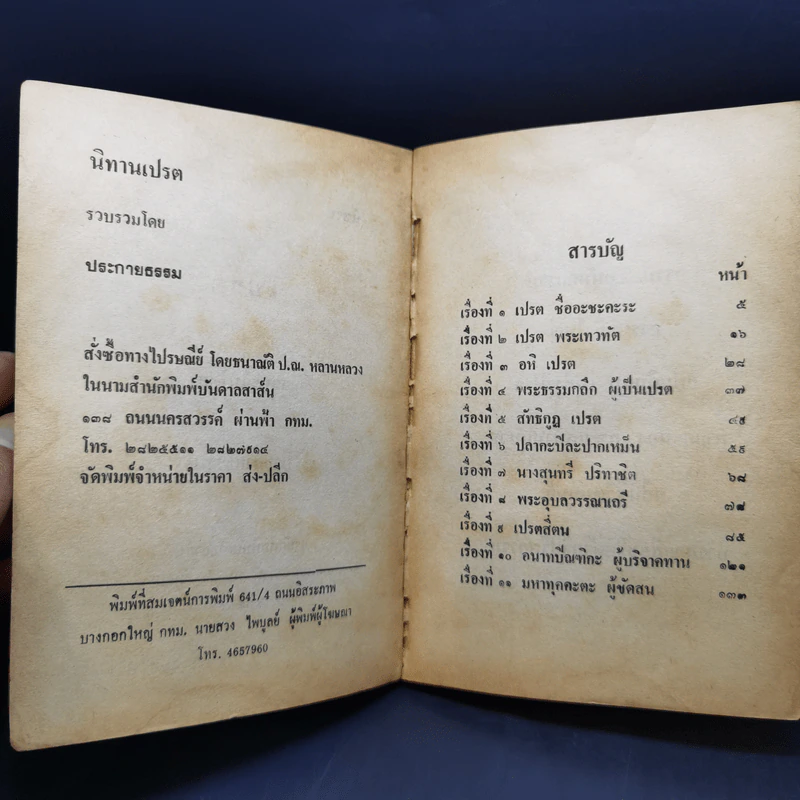 นิทานเปรต
รวบรวมโดย
ประกายธรรม
สั่งซื้อทางไปรษณีย์ โดยธนาณัติ ป.ณ. หลานหลวง
ในนามสำนักพิมพ์บันดาลสาส์น
๑๓๘ ถนนนครสวรรค์ ผ่านฟ้า กทม.
โทร. ๒๘๒๕๕๑๑ ๒๘๒๗๙๑๔
จัดพิมพ์จำหน่ายในราคา ส่ง-ปลีก
พิมพ์ที่สมเจตน์การพิมพ์ 641/4 ถนนอิสระภาพ
บางกอกใหญ่ กทม. นายสวง ไพบูลย์ ผู้พิมพ์ผู้โฆษณา
โทร. 4657960
สารบัญ
หน้า
เรื่องที่ ๑ เปรต ชื่ออะชะคะระ ๕
เรื่องที่ ๒ เปรต พระเทวทัต ๑๖
เรื่องที่ ๓ อหิ เปรต ๒๘
เรื่องที่ ๔ พระธรรมกลึก ผู้เป็นเปรต ๓๗
เรื่องที่ ๕ สัทธิกูฏ เปรต ๔๙
เรื่องที่ ๖ ปลากะปิละปากเหม็น ๕๙
เรื่องที่ ๗ นางสุนทรี ปริทาชิต ๖๘
เรื่องที่ ๘ พระอุบลวรรณาเถรี
เรื่องที่ ๙ เปรตสี่ตน ๘๕
เรื่องที่ ๑๐ อนาทปีณฑิกะ ผู้บริจาคทาน ๑๒๑
เรื่องที่ ๑๑ มหาทุคคะตะ ผู้ขัดสน ๑๓๓